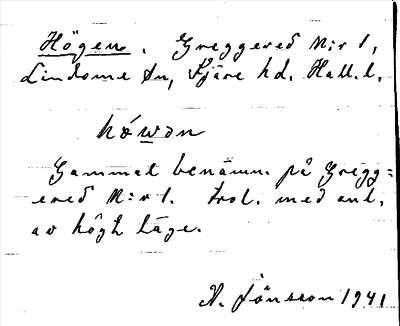 Högen. Greggered N:r 1,
Lindome sn, Fjäre hd. Hall. l.
hówən
Gammal benämn. på Gregg=
ered N:r 1. Trol. med anl.
av högt läge.
N. Jönsson 1941